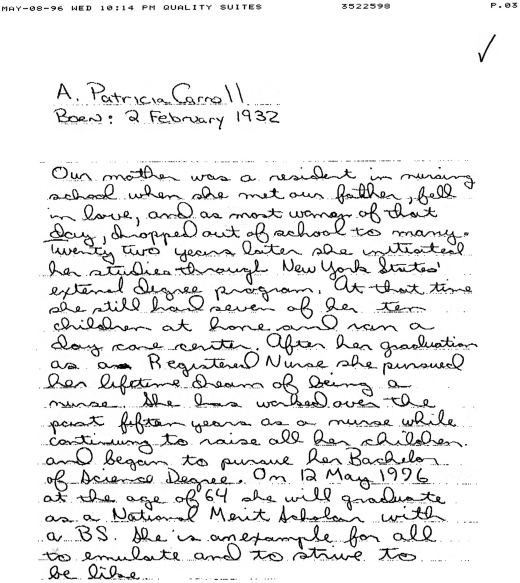 MAY-08-96 WED 10:14 PM QUALITY SUITES 3522598 P.03
A. Patricia Carroll
Born: 2 February 1932
Our mother was a resident in nursing
school when she met our father, fell
in love, and as most women of that
day, dropped out of school to marry.
Twenty two years later she initiated
her studies through New York States'
external degree program. At that time
she still had seven of her ten
children at home and ran a
day care center. After her graduation
as a Registered Nurse she pursued
her lifetime dream of being a
nurse. She has worked over the
past fifteen years as a nurse while
continuing to raise all her children
and began to pursue her Bachelor
of Science Degree. On 12 May 1996
at the age of 64 she will graduate
as a National Merit Scholar with
a BS. She is an example for all
to emulate and to strive to
be like